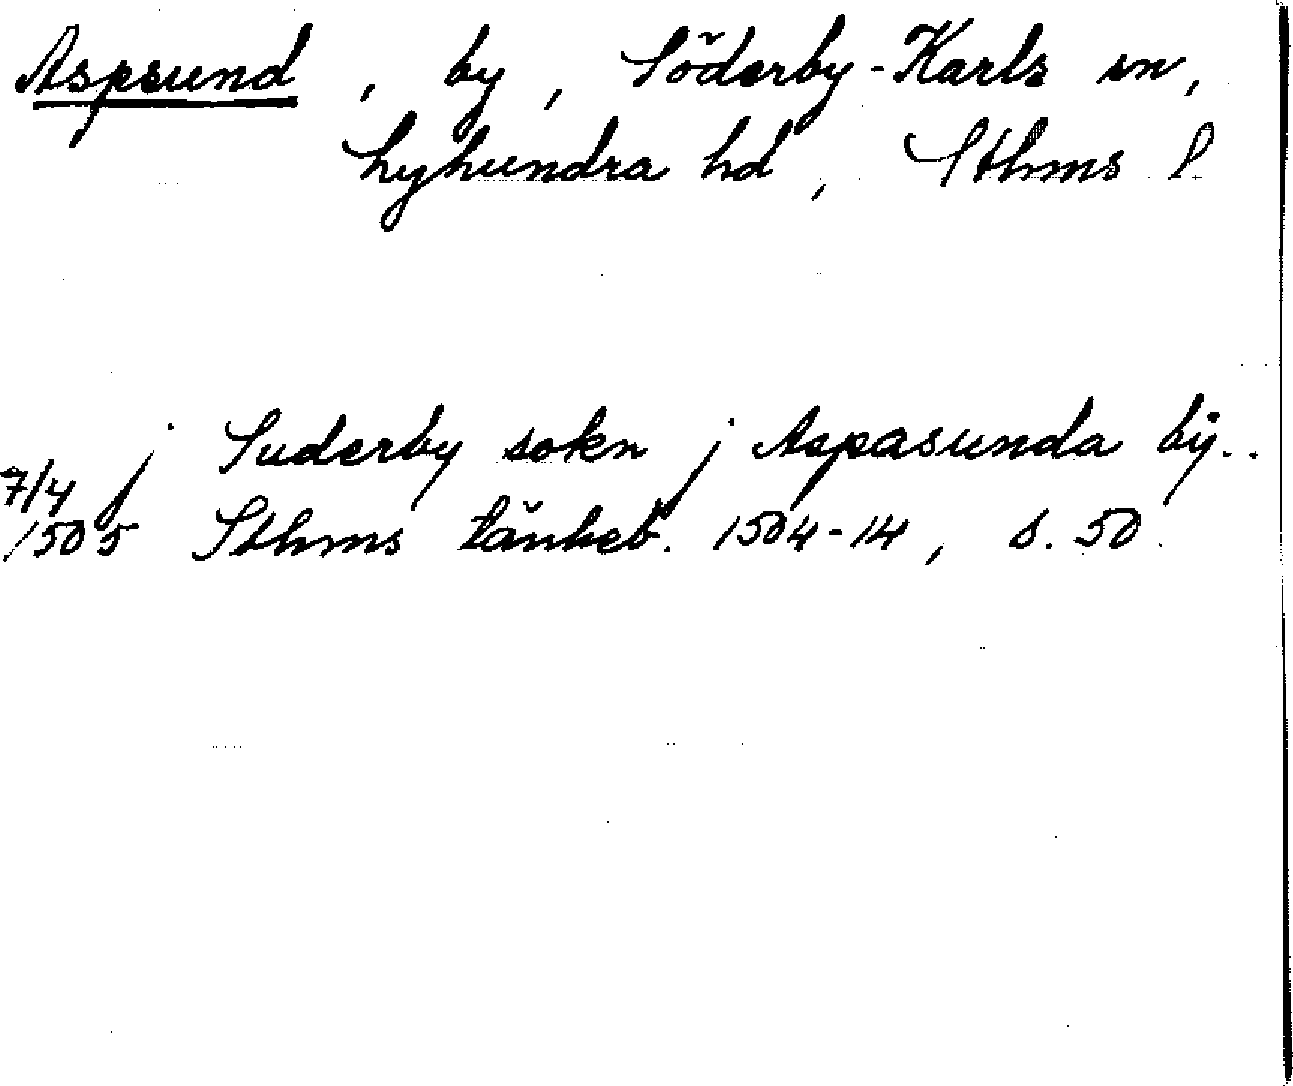 Aspsund, by, Söderby-Karls sn,
Lyhundra hd, Sthms l
j Suderby sokn j Aspasunda bÿ..
7/4
1505 Sthms tänkeb. 1504-14, s. 50.